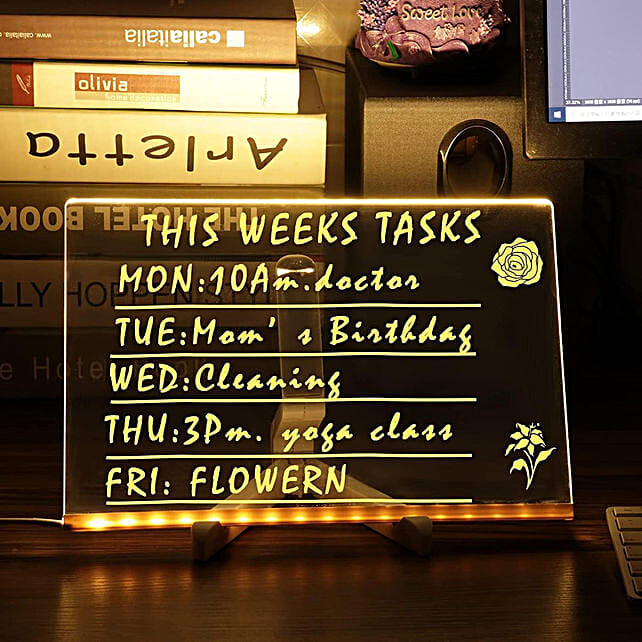 www.callaitalia.
callaitalia
olivia
Arletta
THE HOTEL BOOK
Sweet Love
THIS WEEKS TASKS
MON:10Am.doctor
TUE:Mom's Birthdag
WED:Cleaning
THU:3Pm. yoga class
FRI: FLOWERN